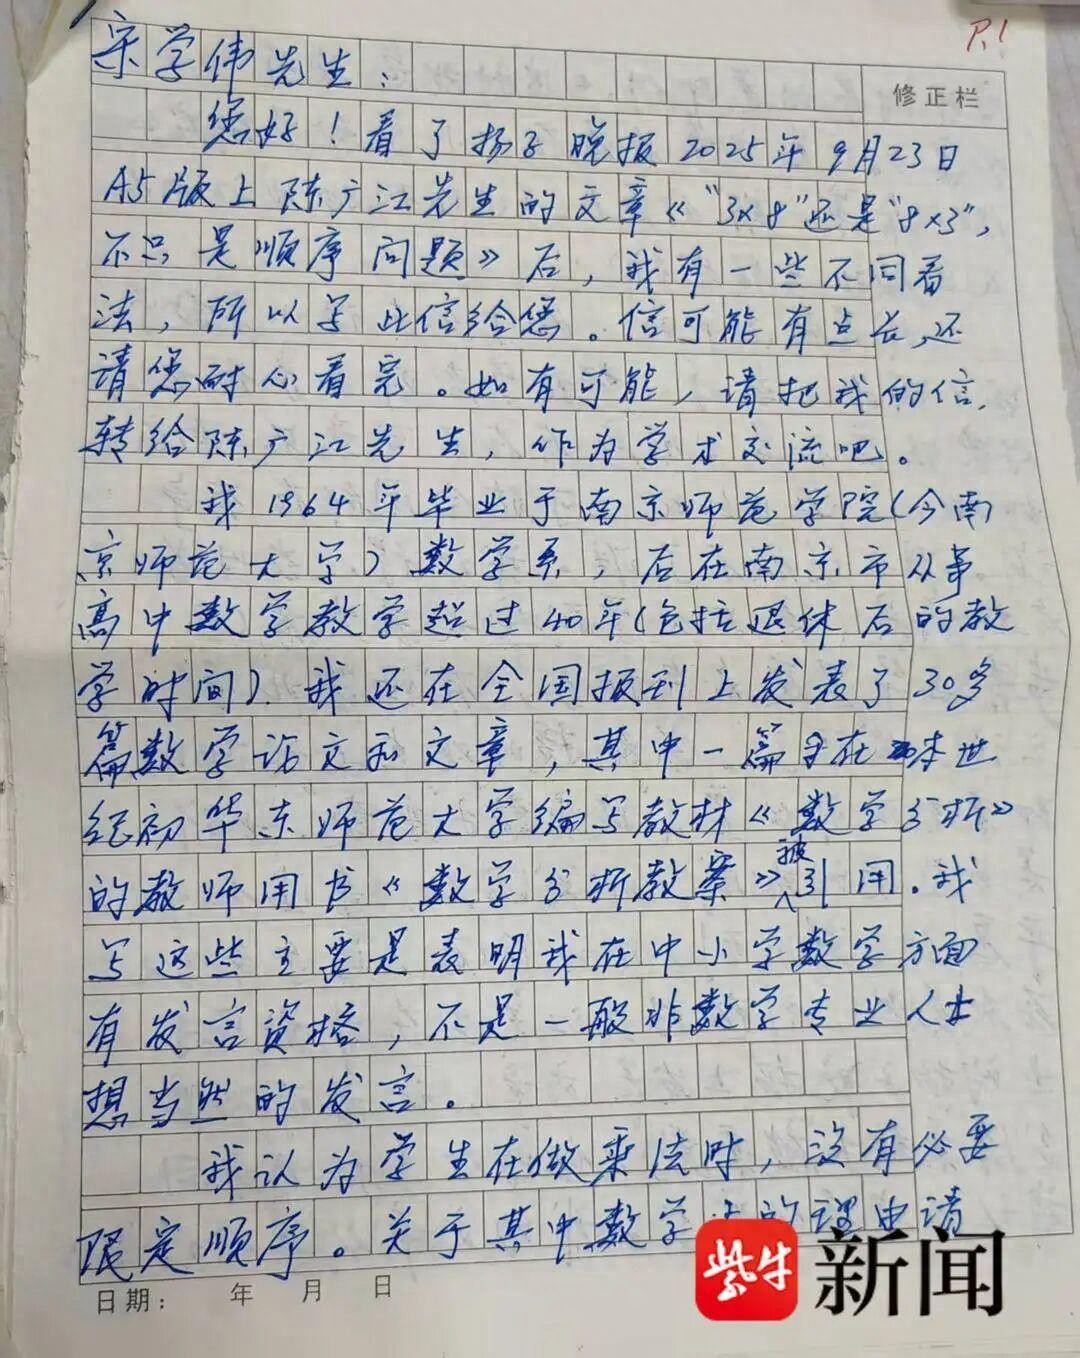 P.1
宋学伟先生：
修正栏
您好！看了扬子晚报2025年9月23日
A5版上陈广江先生的文章《“3×8”还是“8×3”，
不只是顺序问题》后，我有一些不同看
法，所以写此信给您。信可能有点长，还
请您耐心看完。如有可能，请把我的信
转给陈广江先生，作为学术交流吧。
我1964年毕业于南京师范学院（今南
京师范大学）数学系，后在南京市从事
高中数学教学超过40年（包括退休后的教
学时间）．我还在全国报刊上发表了30多
篇数学论文和文章，其中一篇在本世
纪初华东师范大学编写教材《数学分析》
的教师用书《数学分析教案》被引用．我
写这些主要是表明我在中小学数学方面
有发言资格，不是一般非数学专业人士
想当然的发言。
我认为学生在做乘法时，没有必要
限定顺序。关于其中数学上的理由请
日期： 年 月 日
紫牛新闻